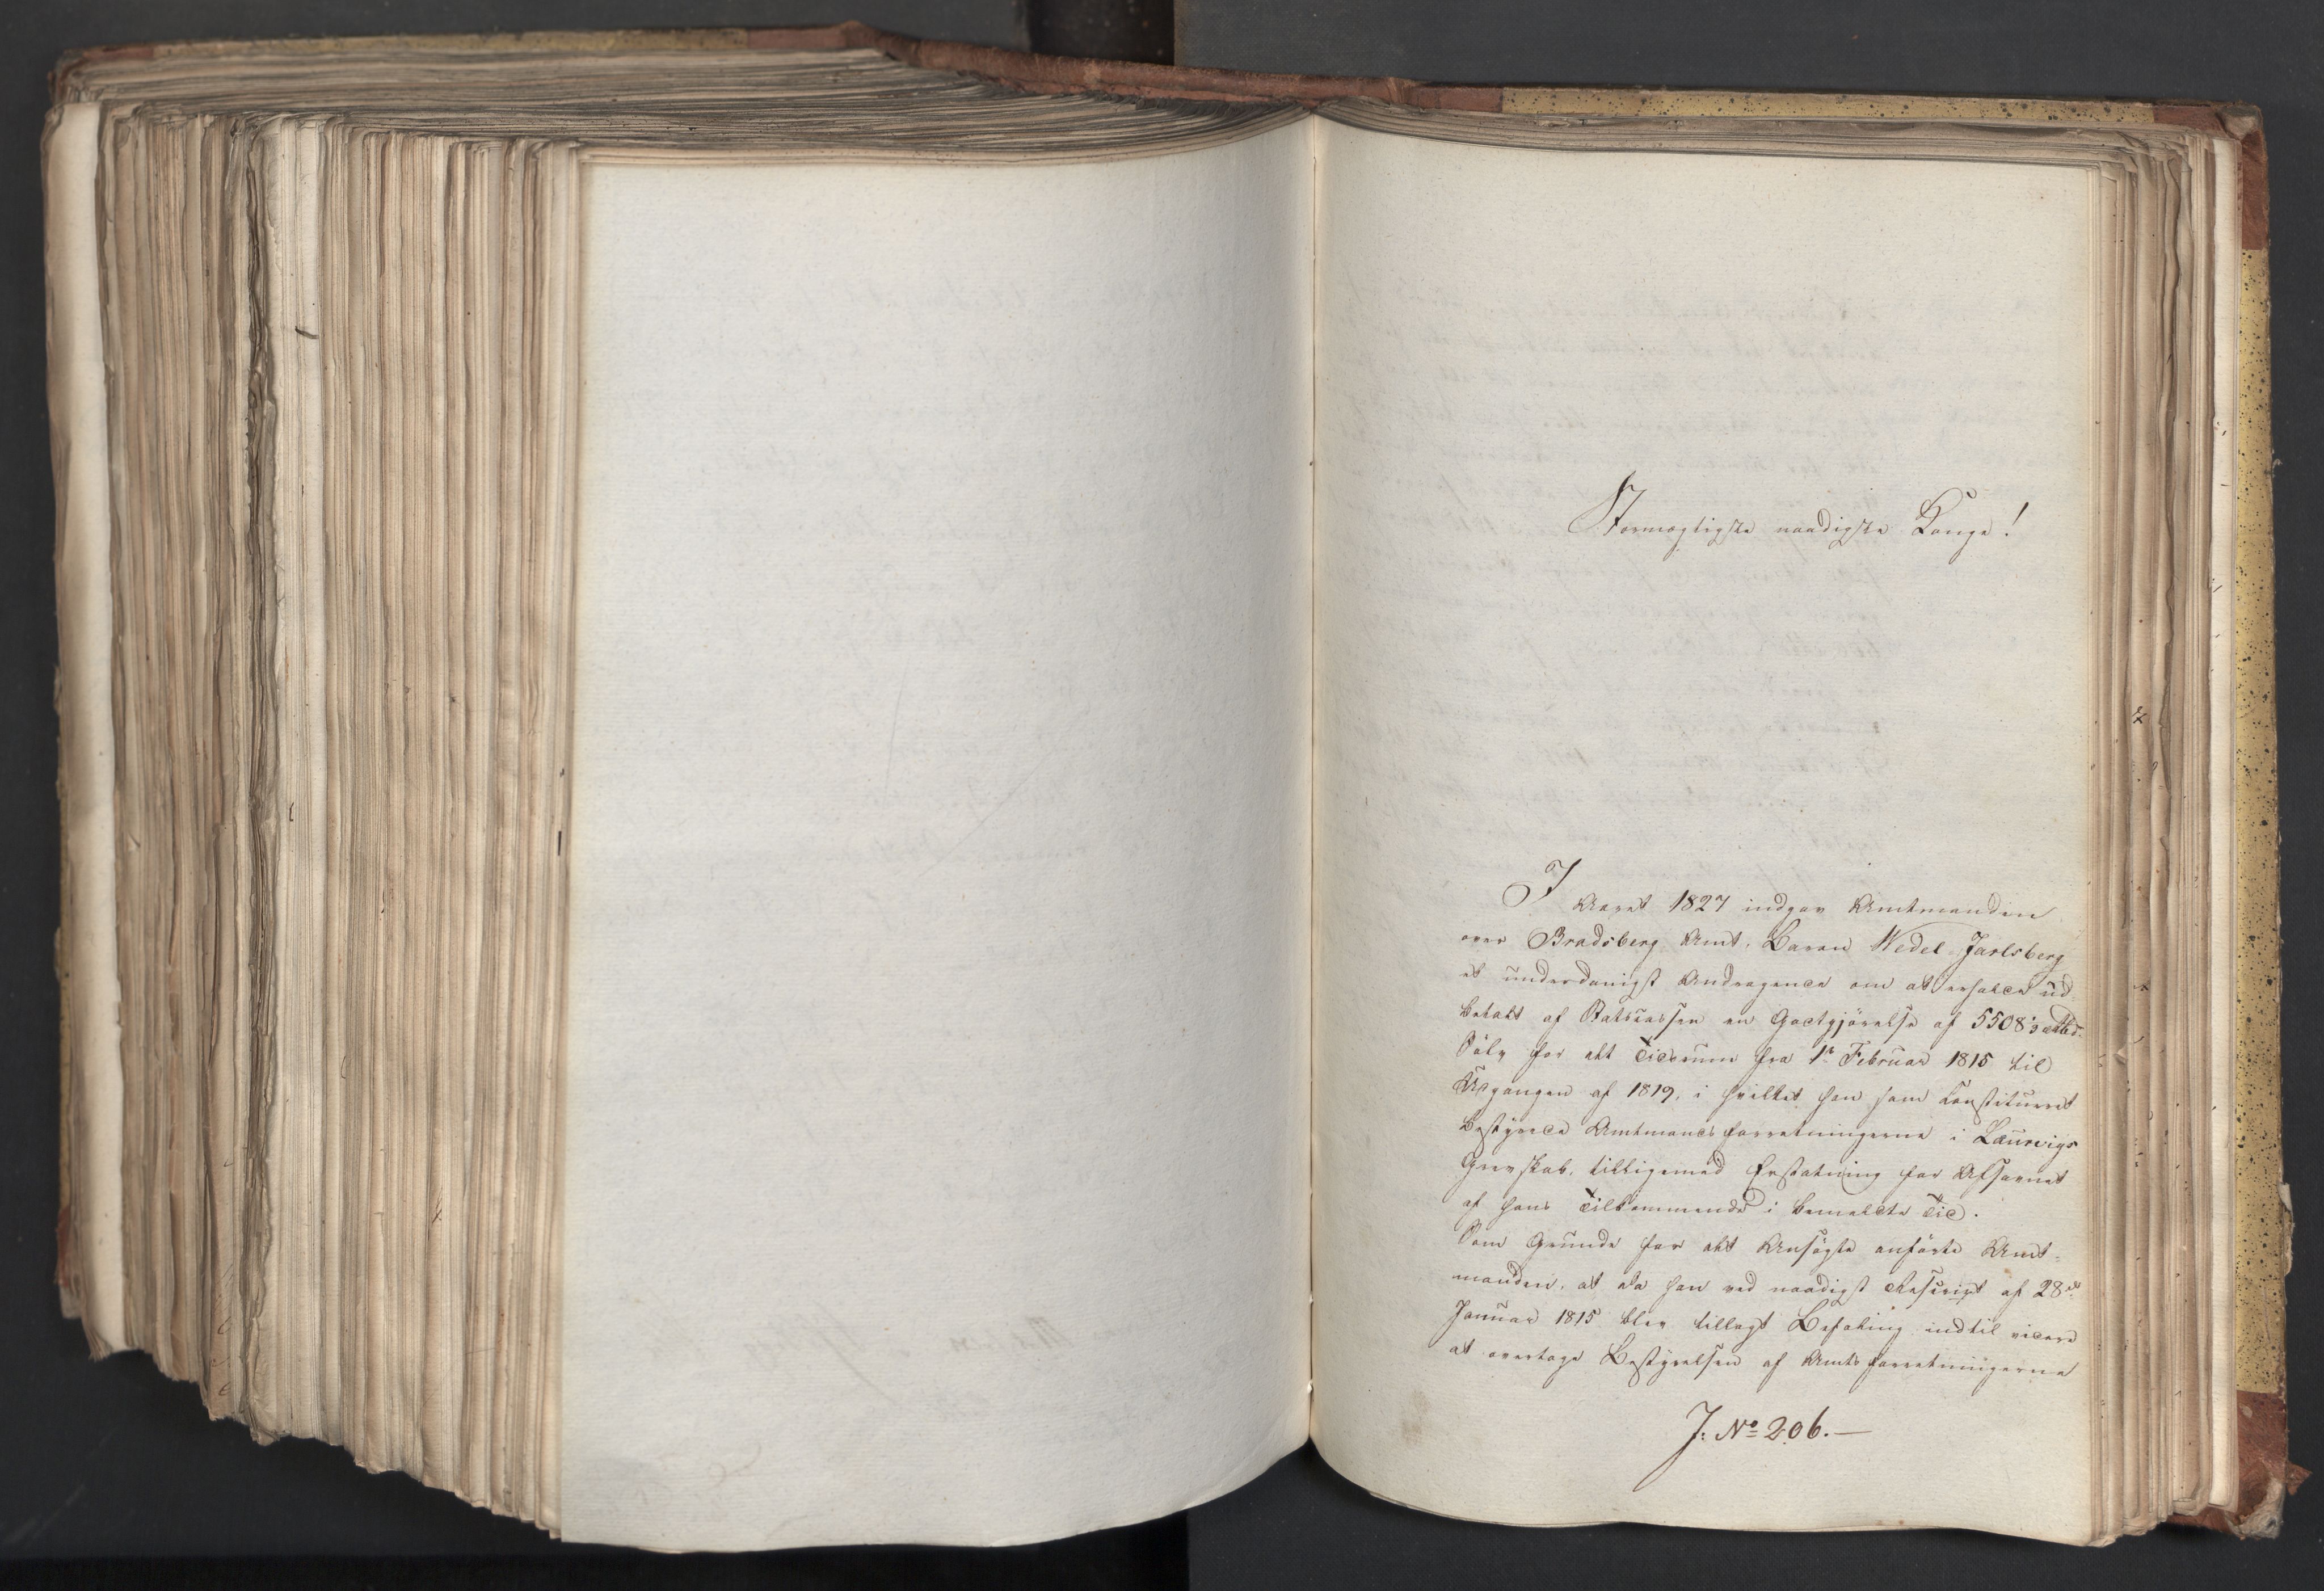 Stormægtigste naadigste Konge!
I Aaret 1827 indgav Amtmanden
over Bradsberg Amt, Baron Wedel-Jarlsberg
et underdanigst Andragende om at erholde ud-
betalt af Statscassen en Godtgjørelse af 5508
Sølv for det Tidsrum fra 1ste Februar 1815 til
Udgangen af 1819, i hvilket han som Constitueret
bestyrede Amtmandsforretningerne i Laurvigs
Grevskab, tilligemed Erstatning for Afsavnet
af hans Tilkommende i bemeldte Tid.
Som Grunde for det Ansøgte anførte Amt-
manden, at da han ved naadigst Rescript af 28de
Januar 1815 blev tillagt Befaling indtil videre
at overtage Bestyrelsen af Amtsforretningerne
J: No 206.—